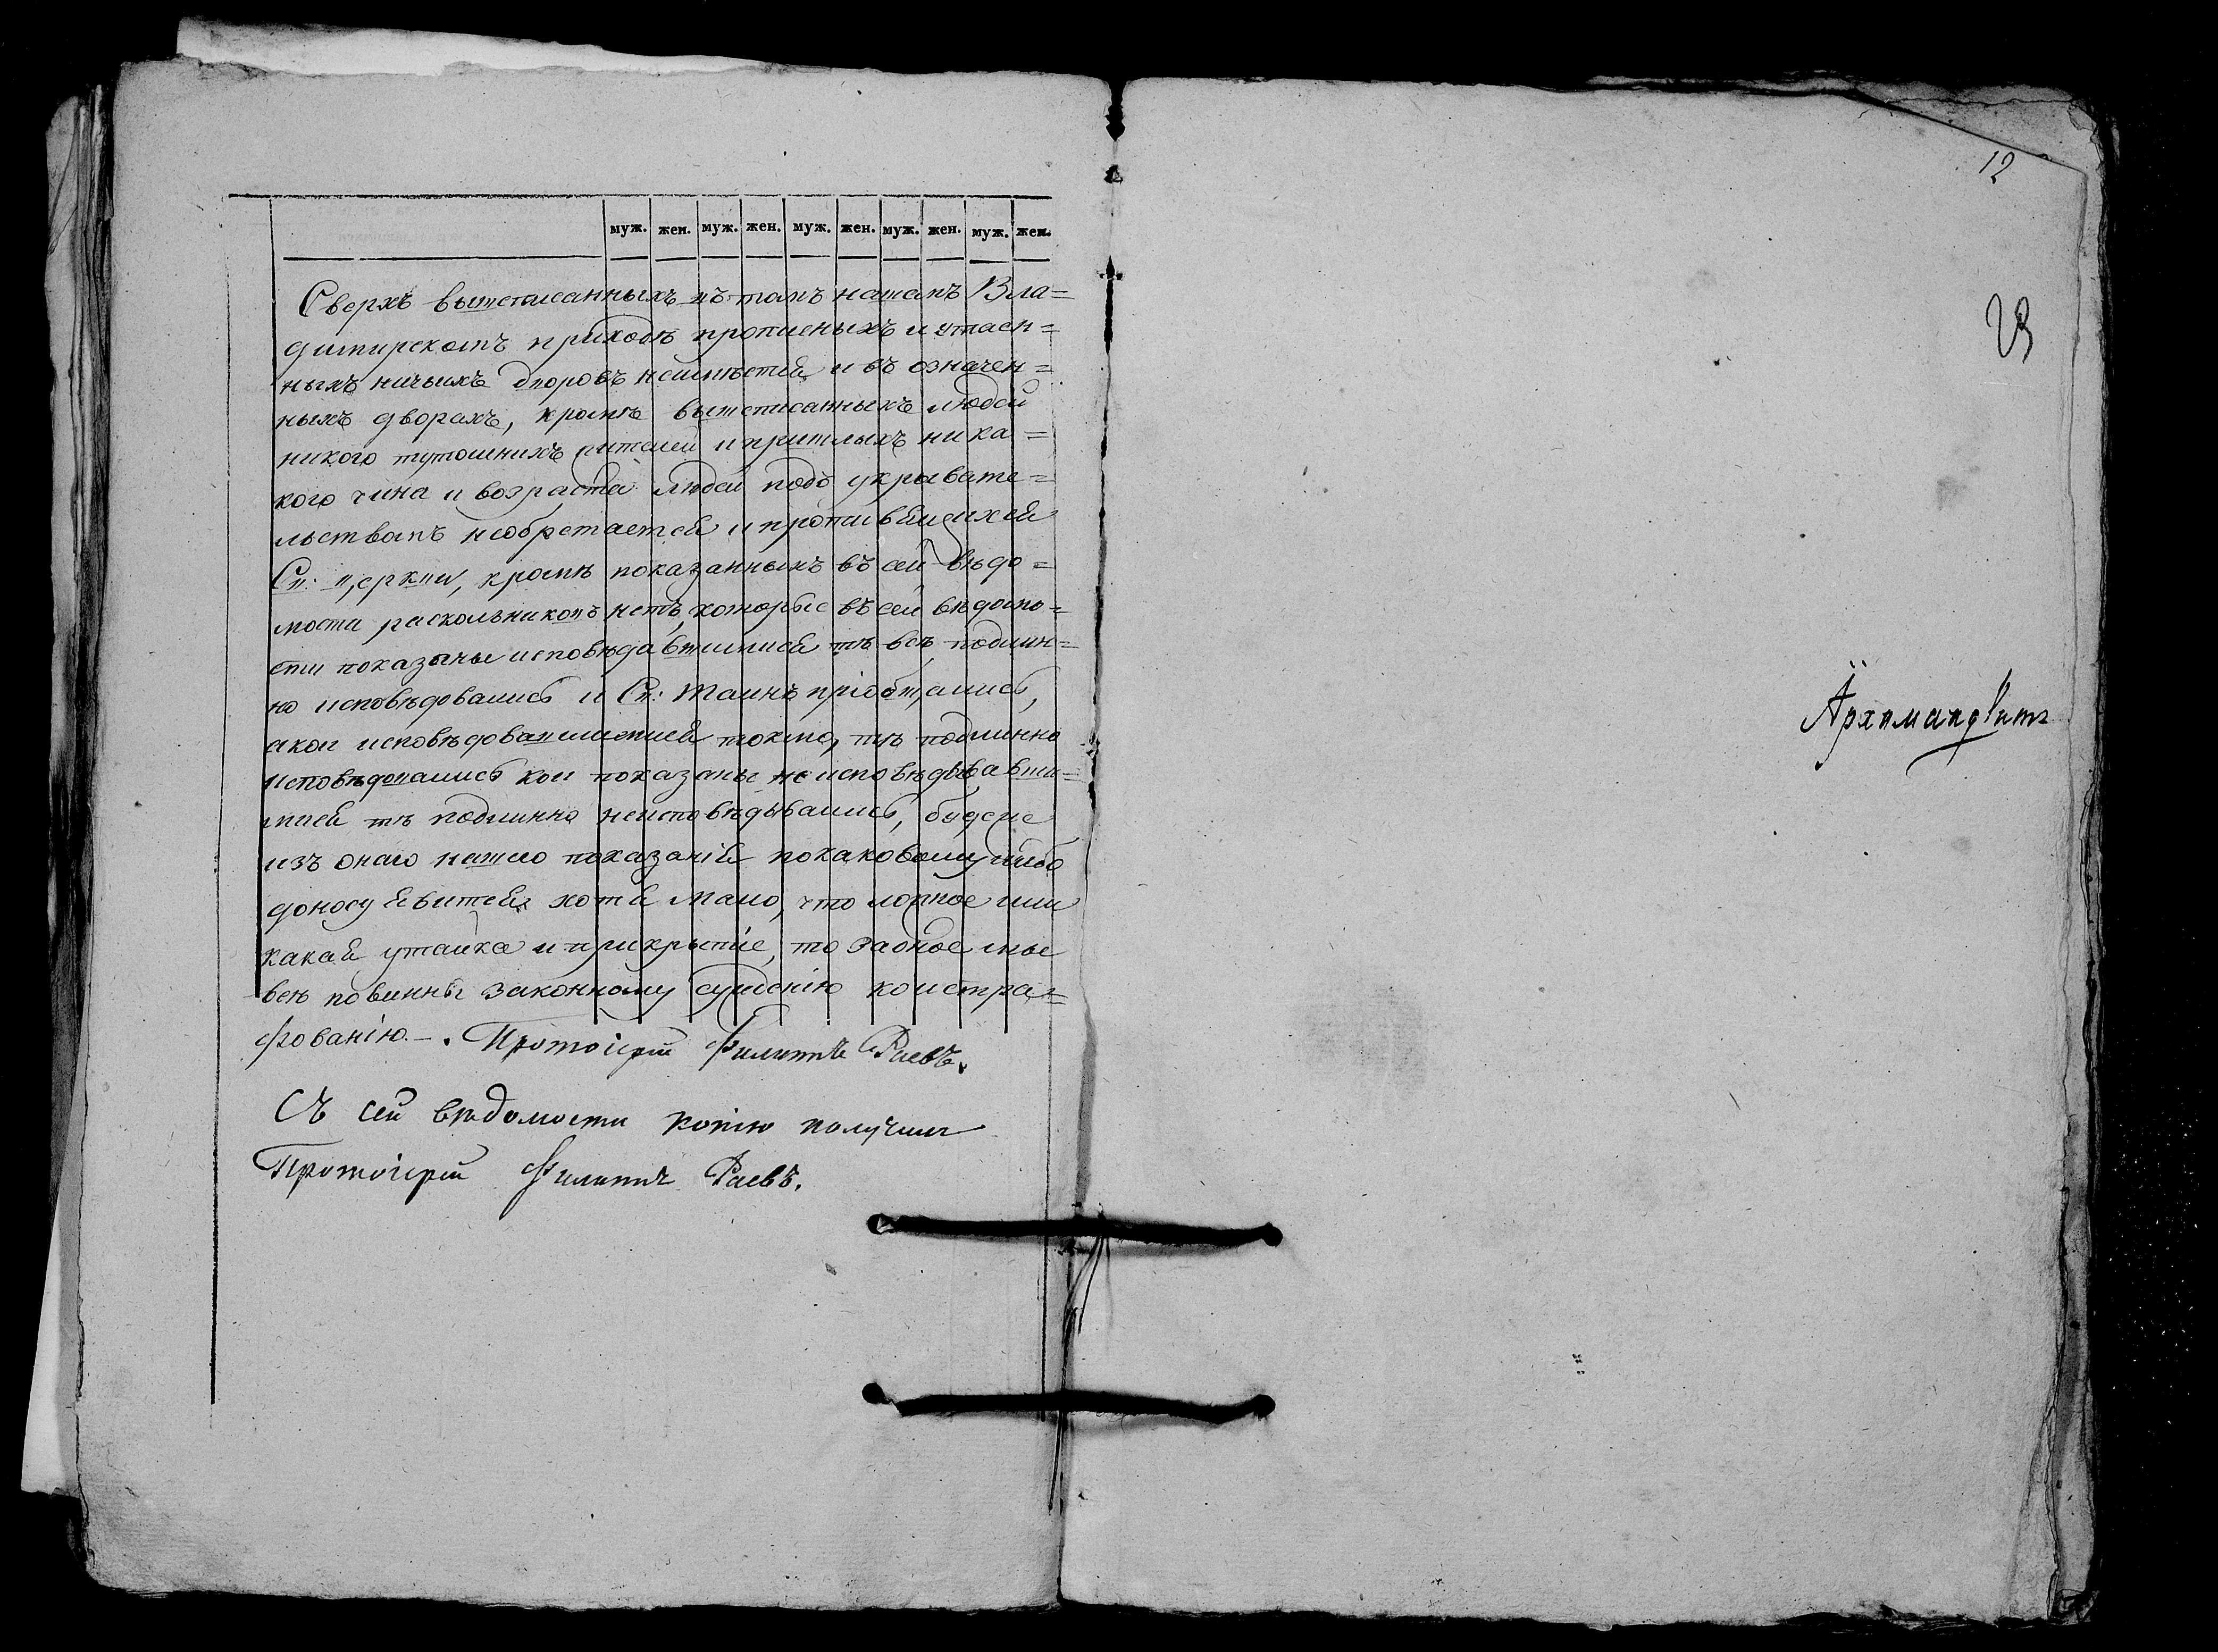 муж. жен. муж. жен. муж. жен. муж. жен. муж. жен.
Сверхъ вышеписанныхъ въ томъ нашемъ Вла=
димирскомъ приходѣ прописныхъ и утаен=
ныхъ ничьихъ дворовъ неимѣется и въ означен=
ныхъ дворахъ, кромѣ вышеписанныхъ людей
никого тутошнихъ жителей и пришлыхъ ника=
кого чина и возраста людей подъ укрывате=
льствомъ необретается и противящихся
Св: церкви, кромѣ показанныхъ въ сей вѣдо=
мости раскольниковъ нетъ, которые въ сей вѣдомо=
сти показаны исповѣдавшимися тѣ всѣ подлин=
но исповѣдовались и Св: Таинъ пріобщались,
а кои исповѣдовавшимися токмо, тѣ подлинно
исповѣдовались кои показаны не исповѣдывавши=
мися тѣ подлинно неисповѣдывались, буде же
изъ онаго нашего показанія покаковому либо
доносу явится хотя мало, что ложное или
какая утайка и прикрытіе, то за оное мы
всѣ повинны законному сужденію и
штрафованію.–. Протоіерей Филиппъ Раевъ.
Съ сей вѣдомости копію получилъ
Протоіерей Филиппъ Раевъ.
12
Архимандритъ